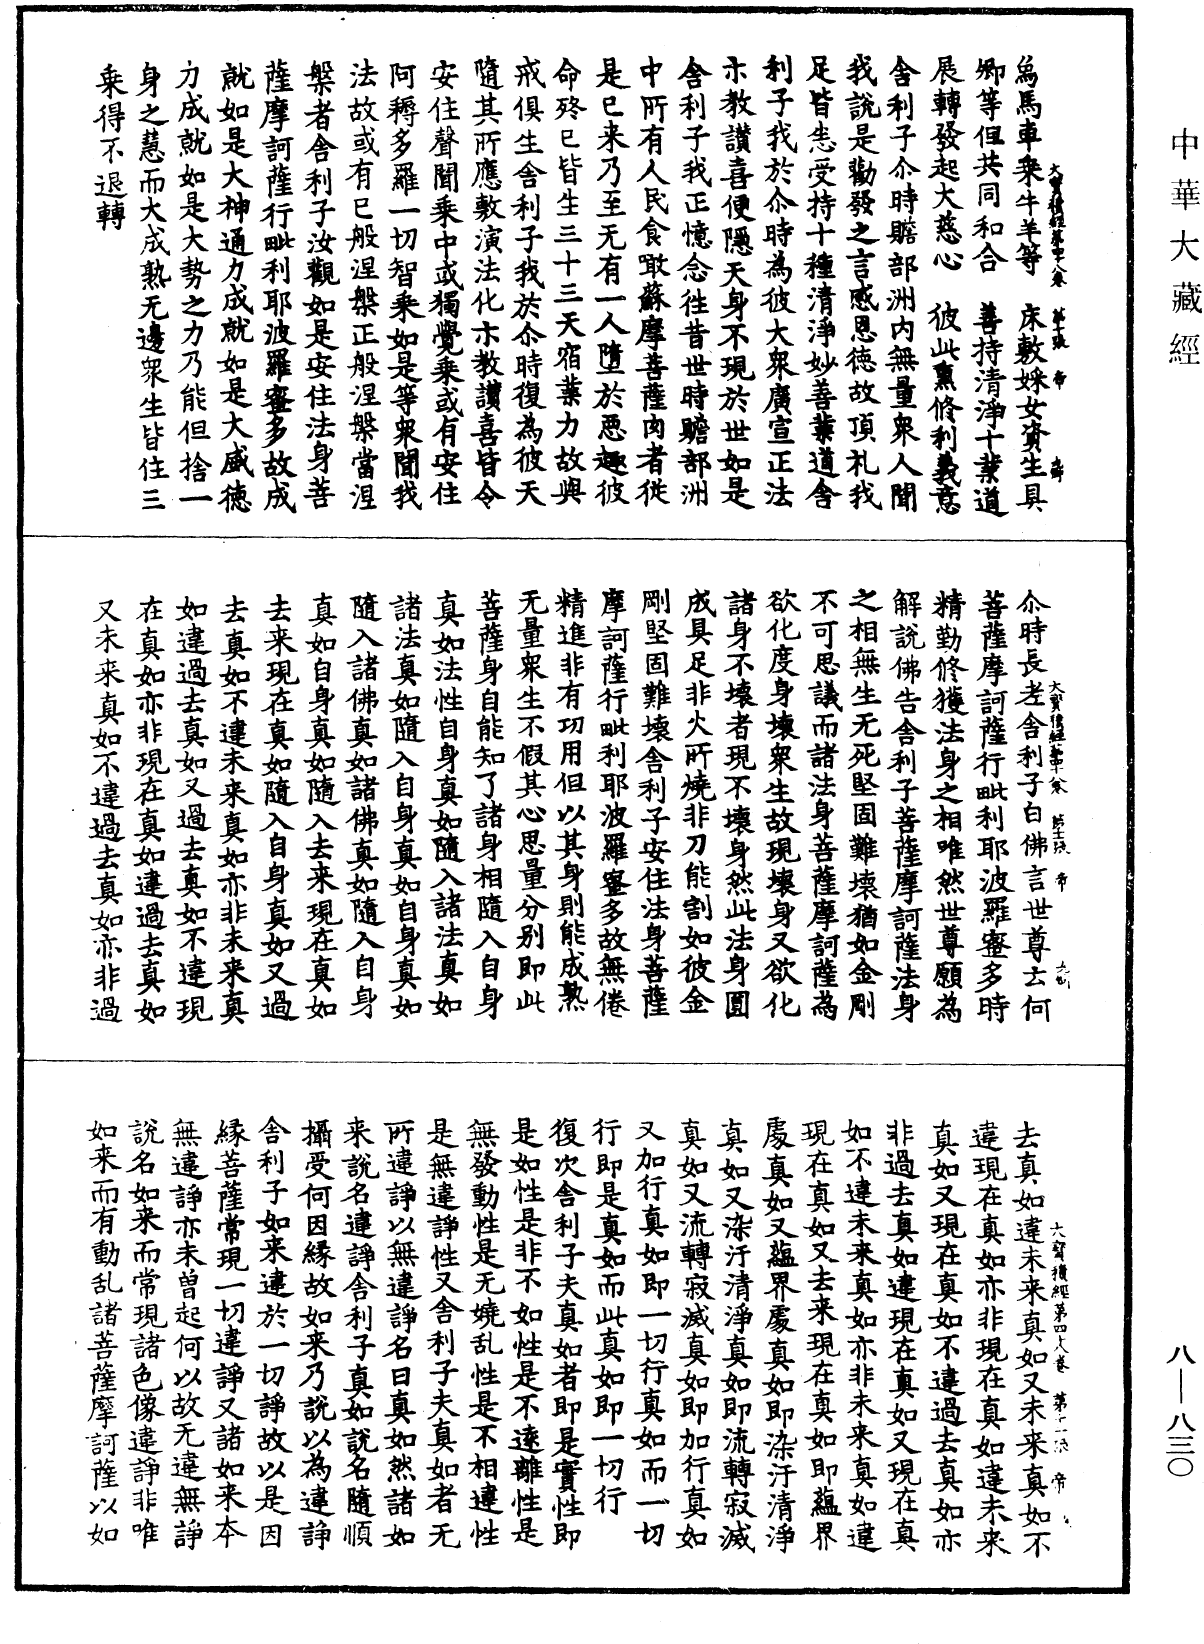 中華大藏經
象馬車乗牛羊等　床敷婇女資生具
卿等但共同和合　善持清淨十業道
展轉發起大慈心　彼此熏修利義意
舎利子尒時贍部洲内無量衆人聞
我說是勸發之言感恩徳故頂礼我
足皆悉受持十種清淨妙善業道舎
利子我於尒時為彼大衆廣宣正法
示教讃喜便隠天身不現於世如是
舎利子我正憶念徃昔世時贍部洲
中所有人民食噉蘇摩菩薩肉者從
是已来乃至无有一人墮於惡趣彼
命終已皆生三十三天宿業力故與
戒俱生舎利子我於尒時復為彼天
隨其所應敷演法化示教讃喜皆令
安住聲聞乗中或獨覺乗或有安住
阿耨多羅一切智乗如是等衆聞我
法故或有已般涅槃正般涅槃當涅
槃者舎利子汝觀如是安住法身菩
薩摩訶薩行毗利耶波羅蜜多故成
就如是大神通力成就如是大威徳
力成就如是大勢之力乃能但捨一
身之慧而大成熟无邊衆生皆住三
乗得不退轉
大寶積經第四十八卷　第十張　帝
尒時長老舎利子白佛言世尊云何
菩薩摩訶薩行毗利耶波羅蜜多時
精勤修獲法身之相唯然世尊願為
解說佛告舎利子菩薩摩訶薩法身
之相無生无死堅固難壞猶如金剛
不可思議而諸法身菩薩摩訶薩為
欲化度身壞衆生故現壞身又欲化
諸身不壞者現不壞身然此法身圓
成具足非火所燒非刀能割如彼金
剛堅固難壞舎利子安住法身菩薩
摩訶薩行毗利耶波羅蜜多故無倦
精進非有功用但以其身則能成熟
无量衆生不假其心思量分别即此
菩薩身自能知了諸身相隨入自身
真如法性自身真如隨入諸法真如
諸法真如隨入自身真如自身真如
隨入諸佛真如諸佛真如隨入自身
真如自身真如隨入去来現在真如
去来現在真如隨入自身真如又過
去真如不違未来真如亦非未来真
如違過去真如又過去真如不違現
在真如亦非現在真如違過去真如
又未来真如不違過去真如亦非過
大寶積經第四十八卷　第十一張　帝
去真如違未来真如又未来真如不
違現在真如亦非現在真如違未来
真如又現在真如不違過去真如亦
非過去真如違現在真如又現在真
如不違未来真如亦非未来真如違
現在真如又去来現在真如即蘊界
處真如又蘊界處真如即染汙清淨
真如又染汙清淨真如即流轉寂滅
真如又流轉寂滅真如即加行真如
又加行真如即一切行真如而一切
行即是真如而此真如即一切行
復次舎利子夫真如者即是實性即
是如性是非不如性是不遠離性是
無發動性是无嬈乱性是不相違性
是無違諍性又舎利子夫真如者无
所違諍以無違諍名曰真如然諸如
来說名違諍舎利子真如說名隨順
攝受何因縁故如来乃說以為違諍
舎利子如来違於一切諍故以是因
縁菩薩常現一切違諍又諸如来本
無違諍亦未曾起何以故无違無諍
說名如来而常現諸色像違諍非唯
如来而有動乱諸菩薩摩訶薩以如
八—八三〇